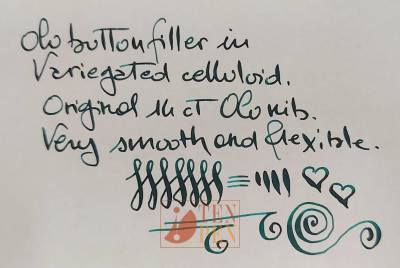 Olo button filler in
Variegated celluloid.
Original 14 CT Olo nib.
Very smooth and flexible.
TEN
PEN